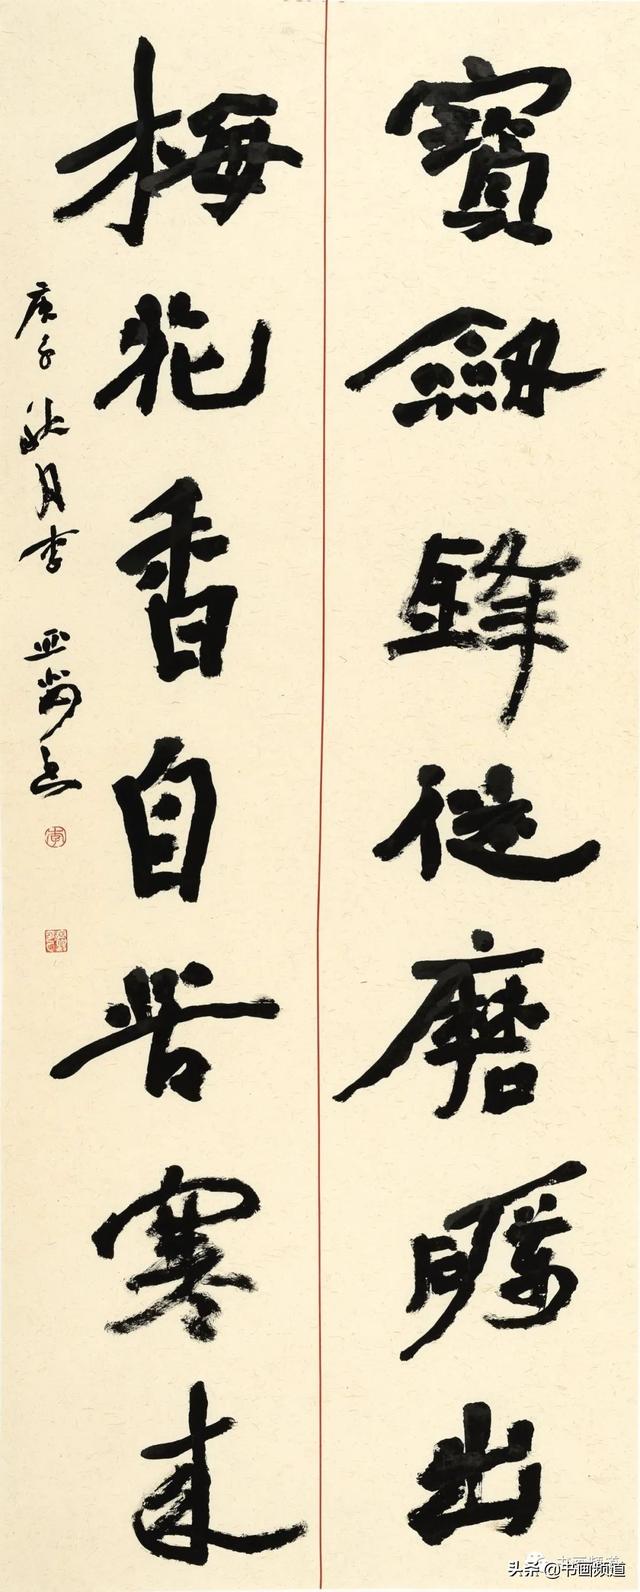 寶劒鋒從磨礪出
梅花香自苦寒来
庚子秋月李
书画频道
头条 @书画频道